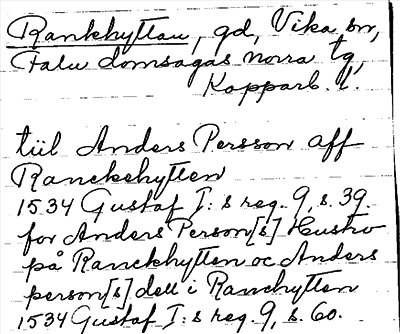 Rankhyttan, gd, Vika sn,
Falu domsagas norra tg,
Kopparb. l.
tiil Anders Persson aff
Ranckehytten
1534 Gustaf I:s reg. 9, s. 39.
for Anders Person[s] Hustro
på Ranckhytten oc Anders
person[s] dell i Ranchytten
1534 Gustaf I:s reg. 9, s. 60.